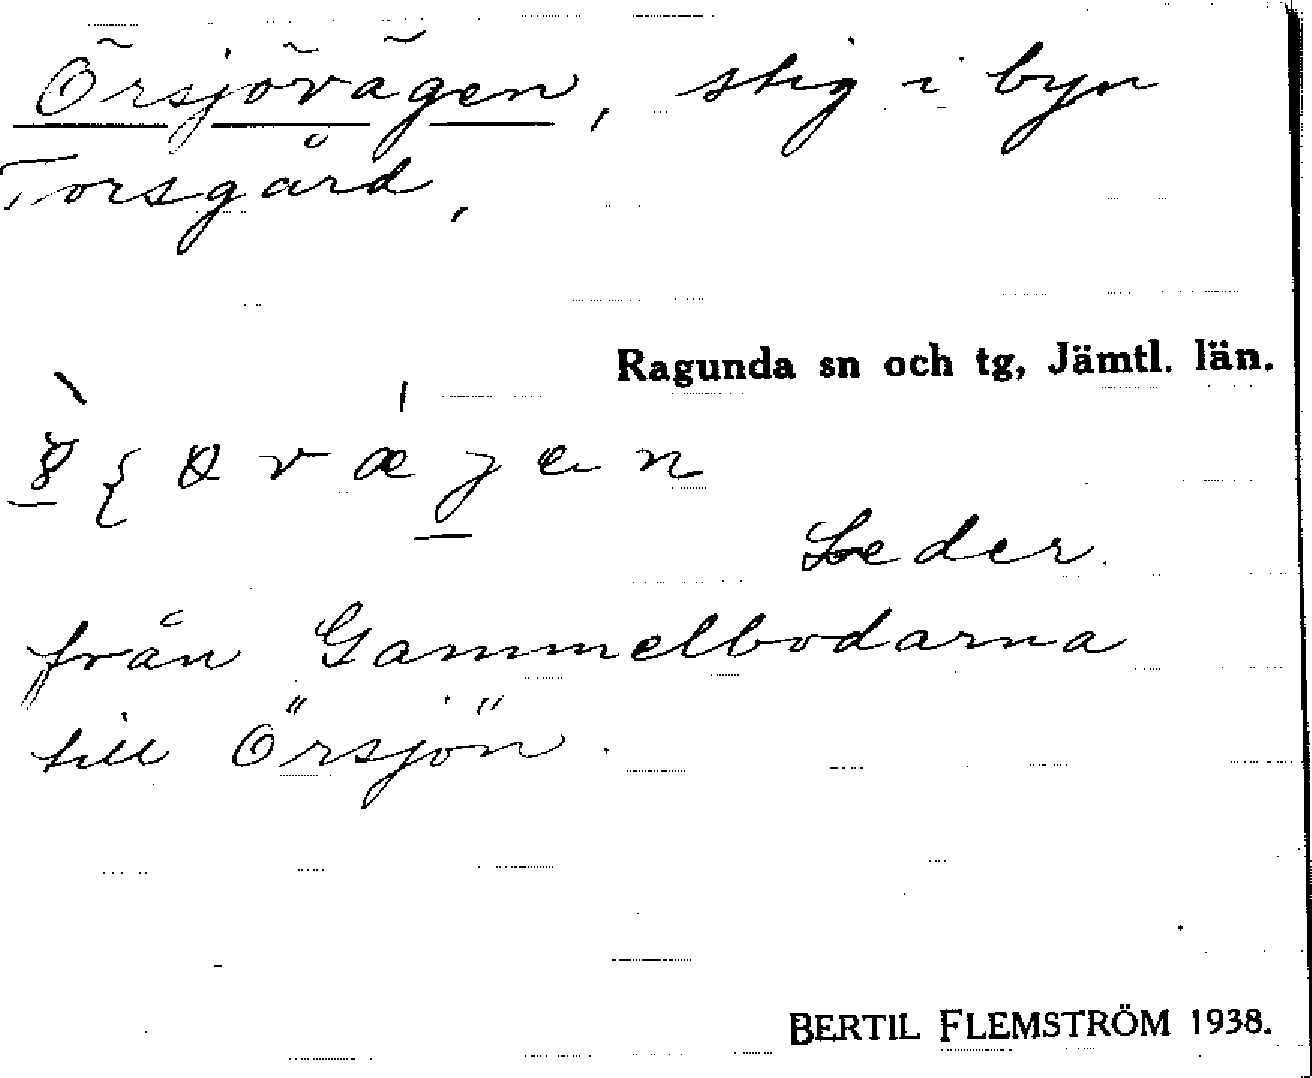 Örsjövägen, stig i byn
Torsgård,
Ragunda sn och tg, Jämtl. län.
Leder
från Gammelbodarna
till Örsjön.
BERTIL FLEMSTRÖM 1938.